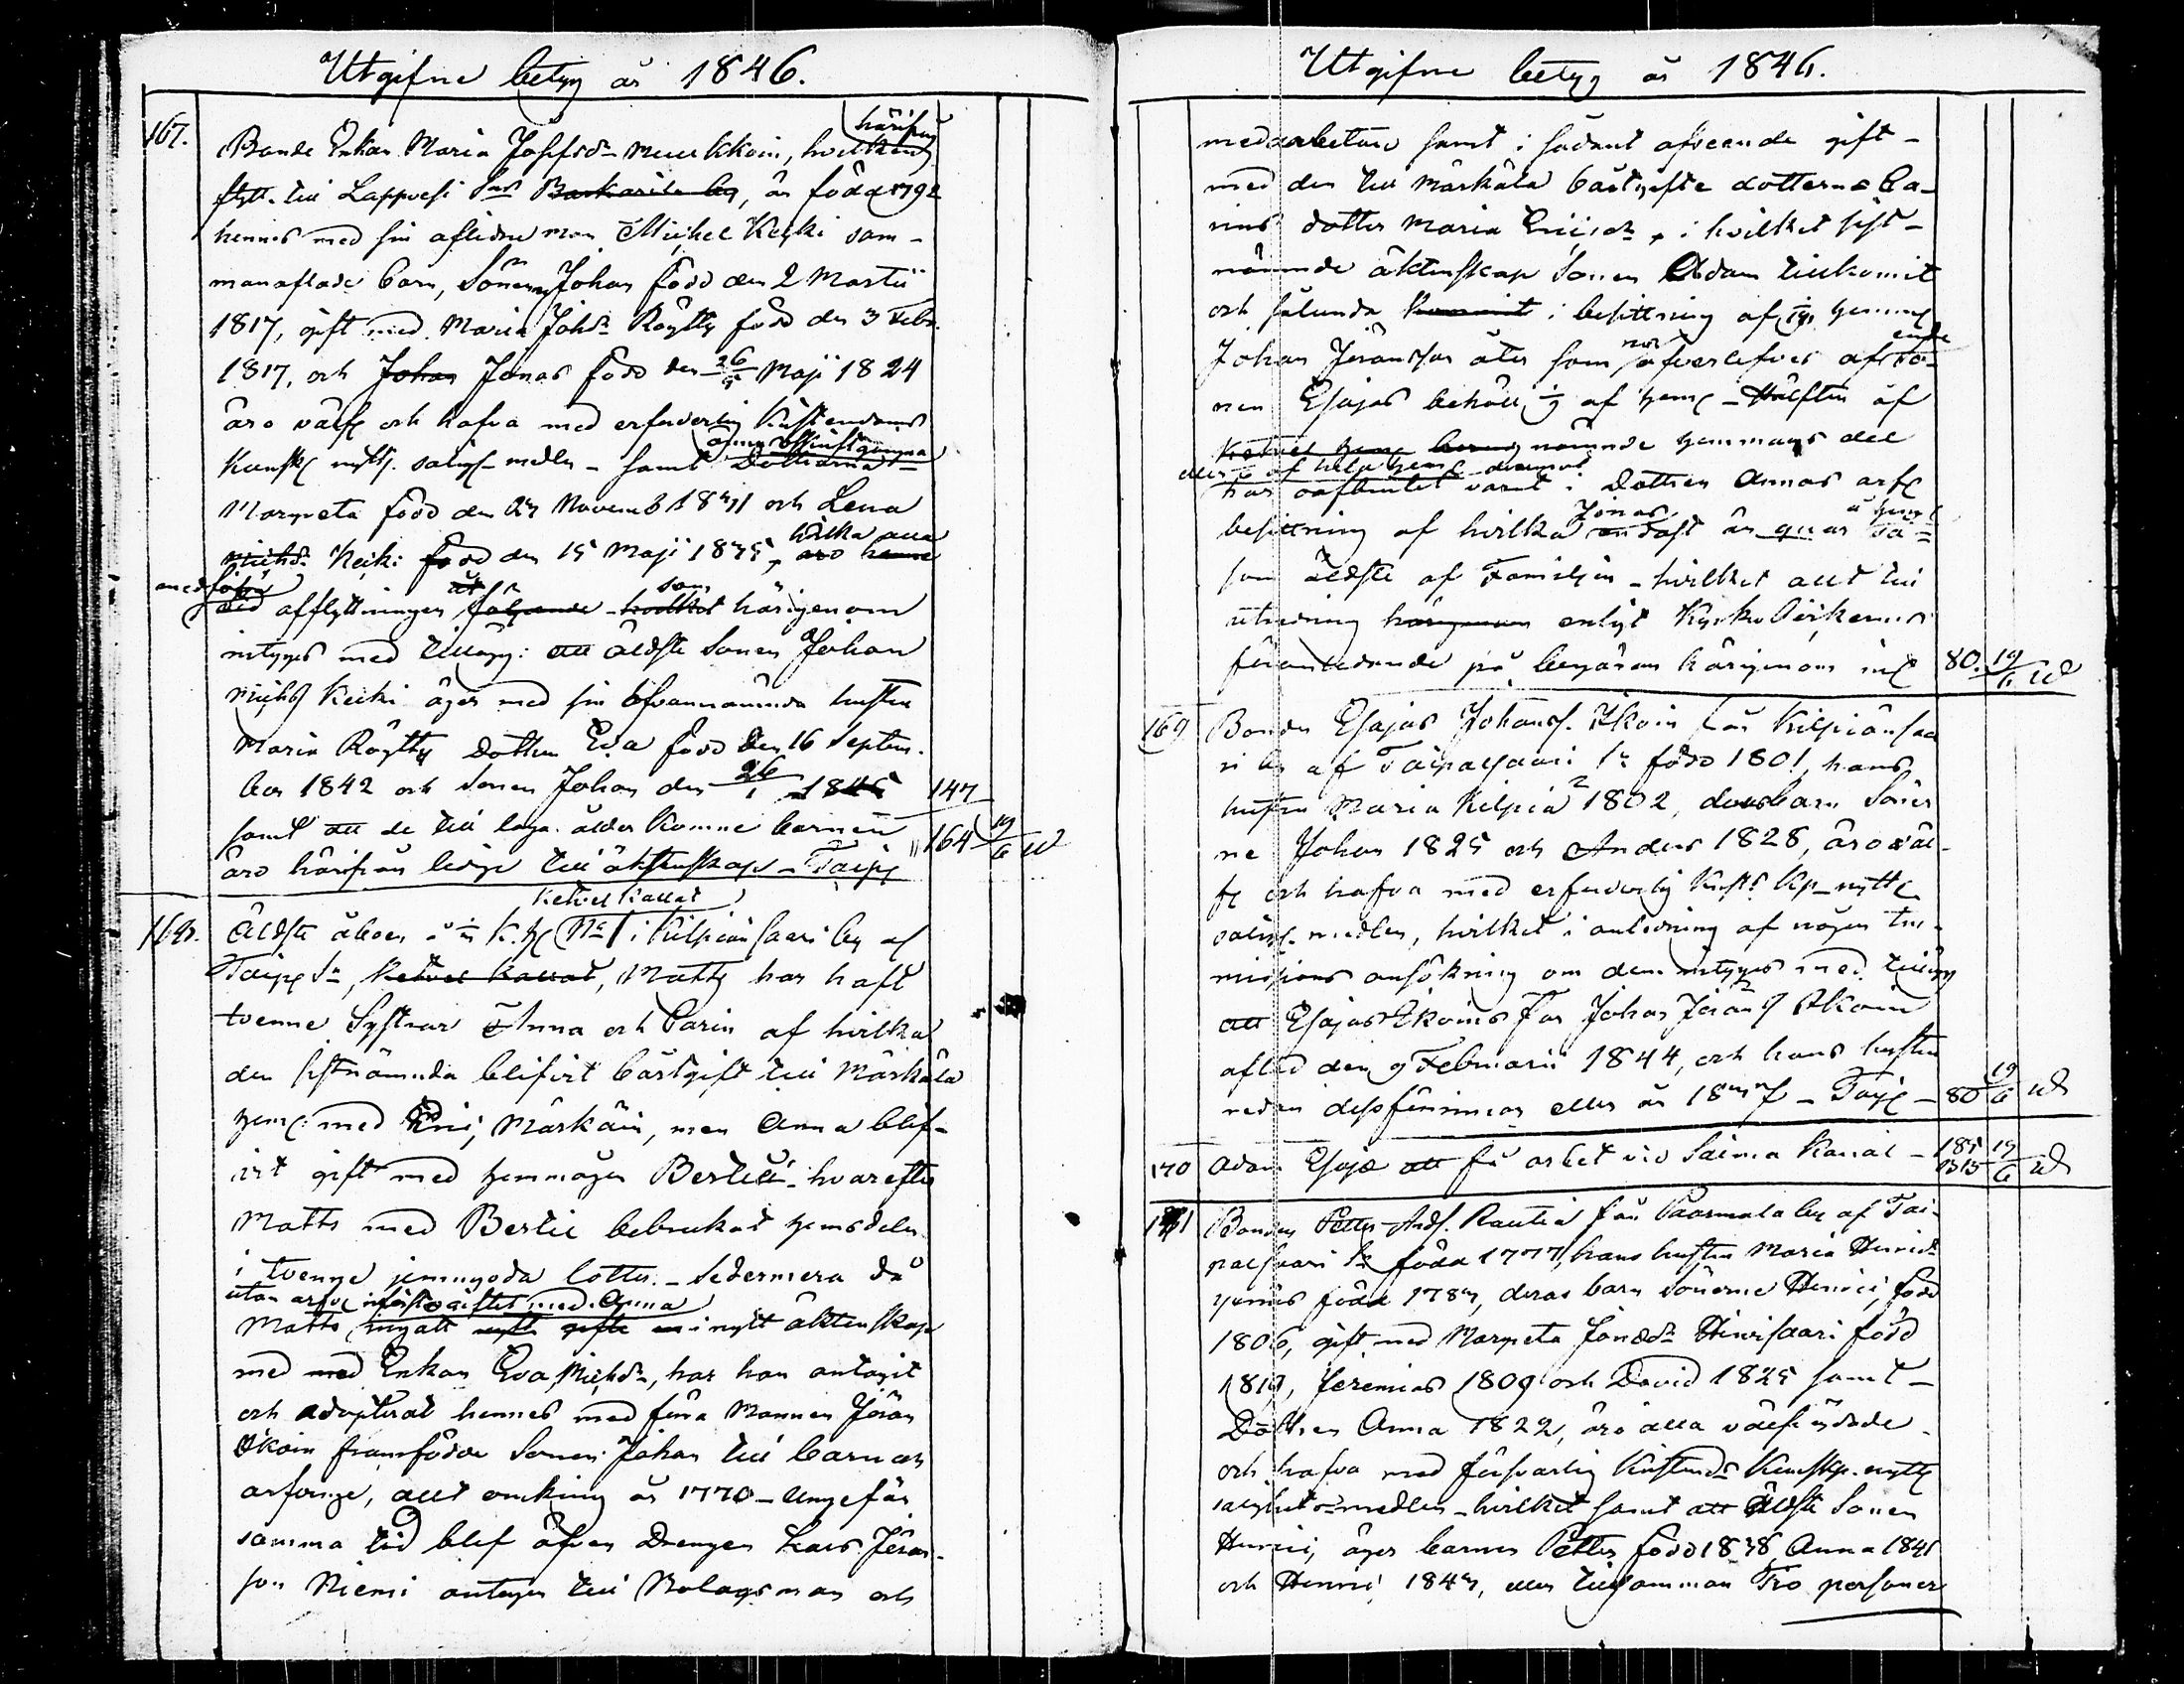 Utgifne betyg år 1846.
167.
härifrån
Bonde Enkan Maria Josefsdr Muukkoin, hvilken
flytt. till Lappvesi Sn Barkarila by, är född 1792
hennes med sin aflidne man Michel Keiki sam-
manaflade barn, Sönerne Johan född den 2 Martii
1817, gift med Maria Johdr Röytty född den 3 Febr.
1817, och Johan Jonas född den 26/5 Maji 1824
äro välfr och hafva med erforderlig Kristendoms
Kunsk nyttj. saligh. medlen - samt Döttrarna
Margreta född den Novemb och Lena
hvilka alla
Michdr Keiki född den 15 Maji 1835, äro henne
medfölja
vid afflyttningen följande hvilket som härigenom
intyges med tillägg: att äldste Sonen Johan
Michs Keiki äger med sin ofvannämnda hustru
Maria Röytty dottren Eva född den 16 Septem-
ber 1842 och Sonen Johan den 26/1 1845
samt att de till laga ålder komne barnen
äro härifrån ledige till äktenskap - Taip
147
164 19/6
Ketvel kallat
168.
Äldste åboen å K. H. No 1 i Kilpiänsaari by af
Taip Sn, Ketvel kallat, Matts har haft
tvenne Systrar Anna och Carin af hvilka
den sistnämnda blifvit bortgift till Märkälä
hem med Eric Märkäin, men Anna blif-
vit gift med hemmågen Bertill - hvarefter
Matts med Bertil bebrukat hemsdelen
i tvenne jemngoda lotter. - Sedermera då
utan arfve i förste giftet med Anna
Matts ingått nytt gifte i nytt äktenskap
med med Enkan Eva Michdr, har han antagit
och adopterat hennes med förra Mannen Jöran
Ikoin framfödde Sonen Johan till barn och
arfvinge, allt omkring år 1770 - Ungefär
samma tid blef äfven Drengen Lars Jöran-
son Niemi antagen till Bolagsman och
Utgifne betyg år 1846.
medarbetare samt i sådant afseende gift -
med den till Märkälä bortgifte dottern Ca-
rins dotter Maria Ericsdr, i hvilket sist-
nämnde äktenskap Sonen Adam tillkommit
och sålunda kommit i besittning af hemm
Johan Jöransson åter som öfverlefves af so-
nen Esajas behöll 1/3 af hem - Hälften af
Ketvel hem nämnde hemmans del
eller af hela hem
har oafbrutet varit i Dottren Annas arf
besittning af hvilka Jonas endast är quar så-
som äldste af Familjen - hvilket allt till
utredning härigenom enligt Kyrko Böckernes
föranledande på begäran härigenom in
80. 19/6
169
Bonden Esajas Johans. Ikoin från Kilpiänsaa
ri by af Taipalsaari Sn född 1801, hans
hustru Maria Kilpiä 1802, deras barn Söner
ne Johan 1825 och Anders 1828, äro väl-
fr och hafva med erforderlig Krist. Kp. nyttj
salig. medlen, hvilket i anledning af någon
missions ansökning om dem intyges med tillägg
att Esajas Ikoins Far Johan Jörans Ikoin
afled den 9 Februarii 1844, och hans hustru
redan dessförinnan eller år - Taip -
80 19/6
170
Adam Esaje att få arbet vid Saima Kanal -
185 19/6
171
Bonden Petter Ands. Rautia från Paarmala by af Tai-
palsaari Sn född 1777, hans hustru Maria Henricdr
hennes född 1784, deras barn Sönerne Henric, född
1806, gift med Margreta Jonædr Hinrisaari född
1819, Jeremias 1809 och David 1825 samt -
Dottren Anna 1822, äro alla välfrejdade
och hafva med försvarlig Kristends Kunskp. nyttj
salighets medlen - hvilket samt att äldste Sonen
Henric, äger barnen Petter född 1838 Anna 1841
och Henric 1844, eller tillsamman Tio personer